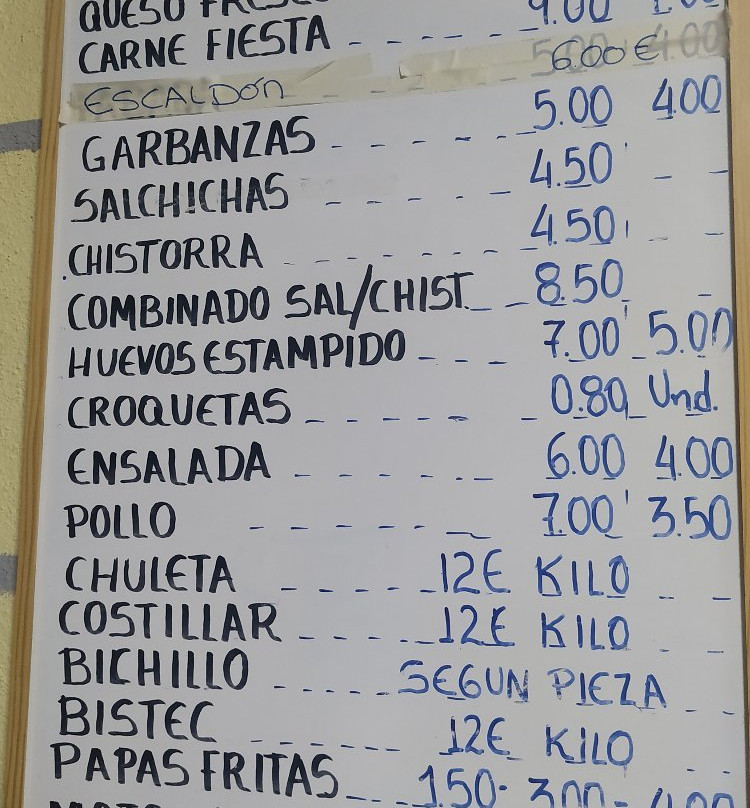 QUESO
CARNE FIESTA - - - - - 9.00
ESCALDÓN - - - 6.00€
GARBANZAS - - - - - 5.00 4.00
SALCHICHAS - - - - - 4.50 - -
CHISTORRA - - - - - - 4.50 - -
COMBINADO SAL/CHIST - - 8.50 -
HUEVOS ESTAMPIDO - - - 7.00 - 5.00
CROQUETAS - - - - - 0.80 Und.
ENSALADA - - - - - - 6.00 4.00
POLLO - - - - - - 7.00 3.50
CHULETA - - - - - 12€ KILO - -
COSTILLAR - - - - - 12€ KILO - -
BICHILLO - - - - - SEGUN PIEZA - -
BISTEC - - - - - - 12€ KILO - -
PAPAS FRITAS - - - 1.50 - 3.00 - 4.00